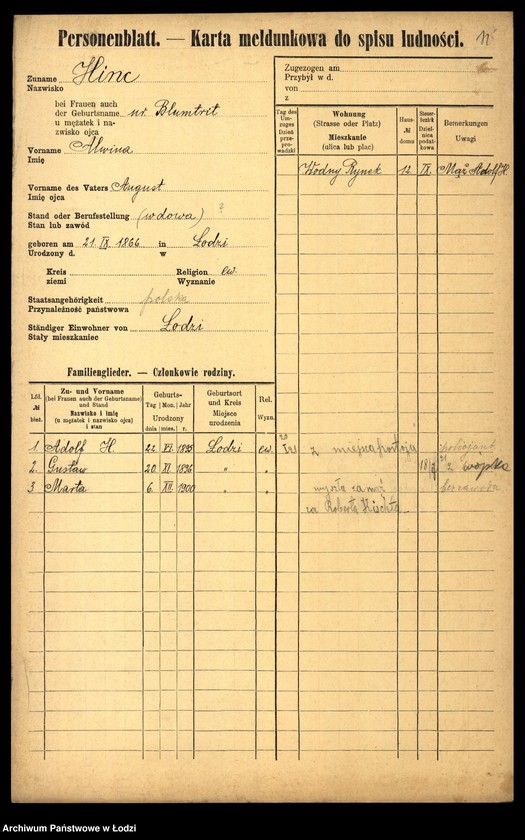 Personenblatt. — Karta meldunkowa do spisu ludności.
Zuname Hinc
Nazwisko
bei Frauen auch
der Geburtsname ur. Blumtrit
u mężatek i na-
zwisko ojca
Vorname Alwina
Imię
Vorname des Vaters August
Imię ojca
Stand oder Berufsstellung (wdowa) ?
Stan lub zawód
geboren am 21. IX. 1866 in Lodzi
Urodzony d. w
Kreis Religion ew.
ziemi Wyznanie
Staatsangehörigkeit polska
Przynależność państwowa
Ständiger Einwohner von Lodzi
Stały mieszkaniec
Zugezogen am
Przybył w d.
von
z
Tag des Um-zuges Dzień prze-prowadzki
Wohnung
(Strasse oder Platz)
Mieszkanie
(ulica lub plac)
Haus- № domu
Steuer-bezirk Dziel-nica podat-kowa
Bemerkungen
Uwagi
Wodny Rynek 12. IX. Mąż Adolf H.
Familienglieder. — Członkowie rodziny.
Lfd. № bież.
Zu- und Vorname
(bei Frauen auch der Geburtsname)
und Stand
Nazwisko i imię
(u mężatek i nazwisko ojca)
i stan
Geburts-
Tag Mon. Jahr
Urodzony
dnia mies. r.
Geburtsort
und Kreis
Miejsce
urodzenia
Rel.
Wyzn.
1. Adolf H. 22. VI. 1895 Lodzi ew. z miejsca postoju policjant
2. Gustaw 20. XI 1896 " " z wojska
3 Marta 6. XII. 1900 " " wyszła zamąż
za Roberta
Archiwum Państwowe w Łodzi